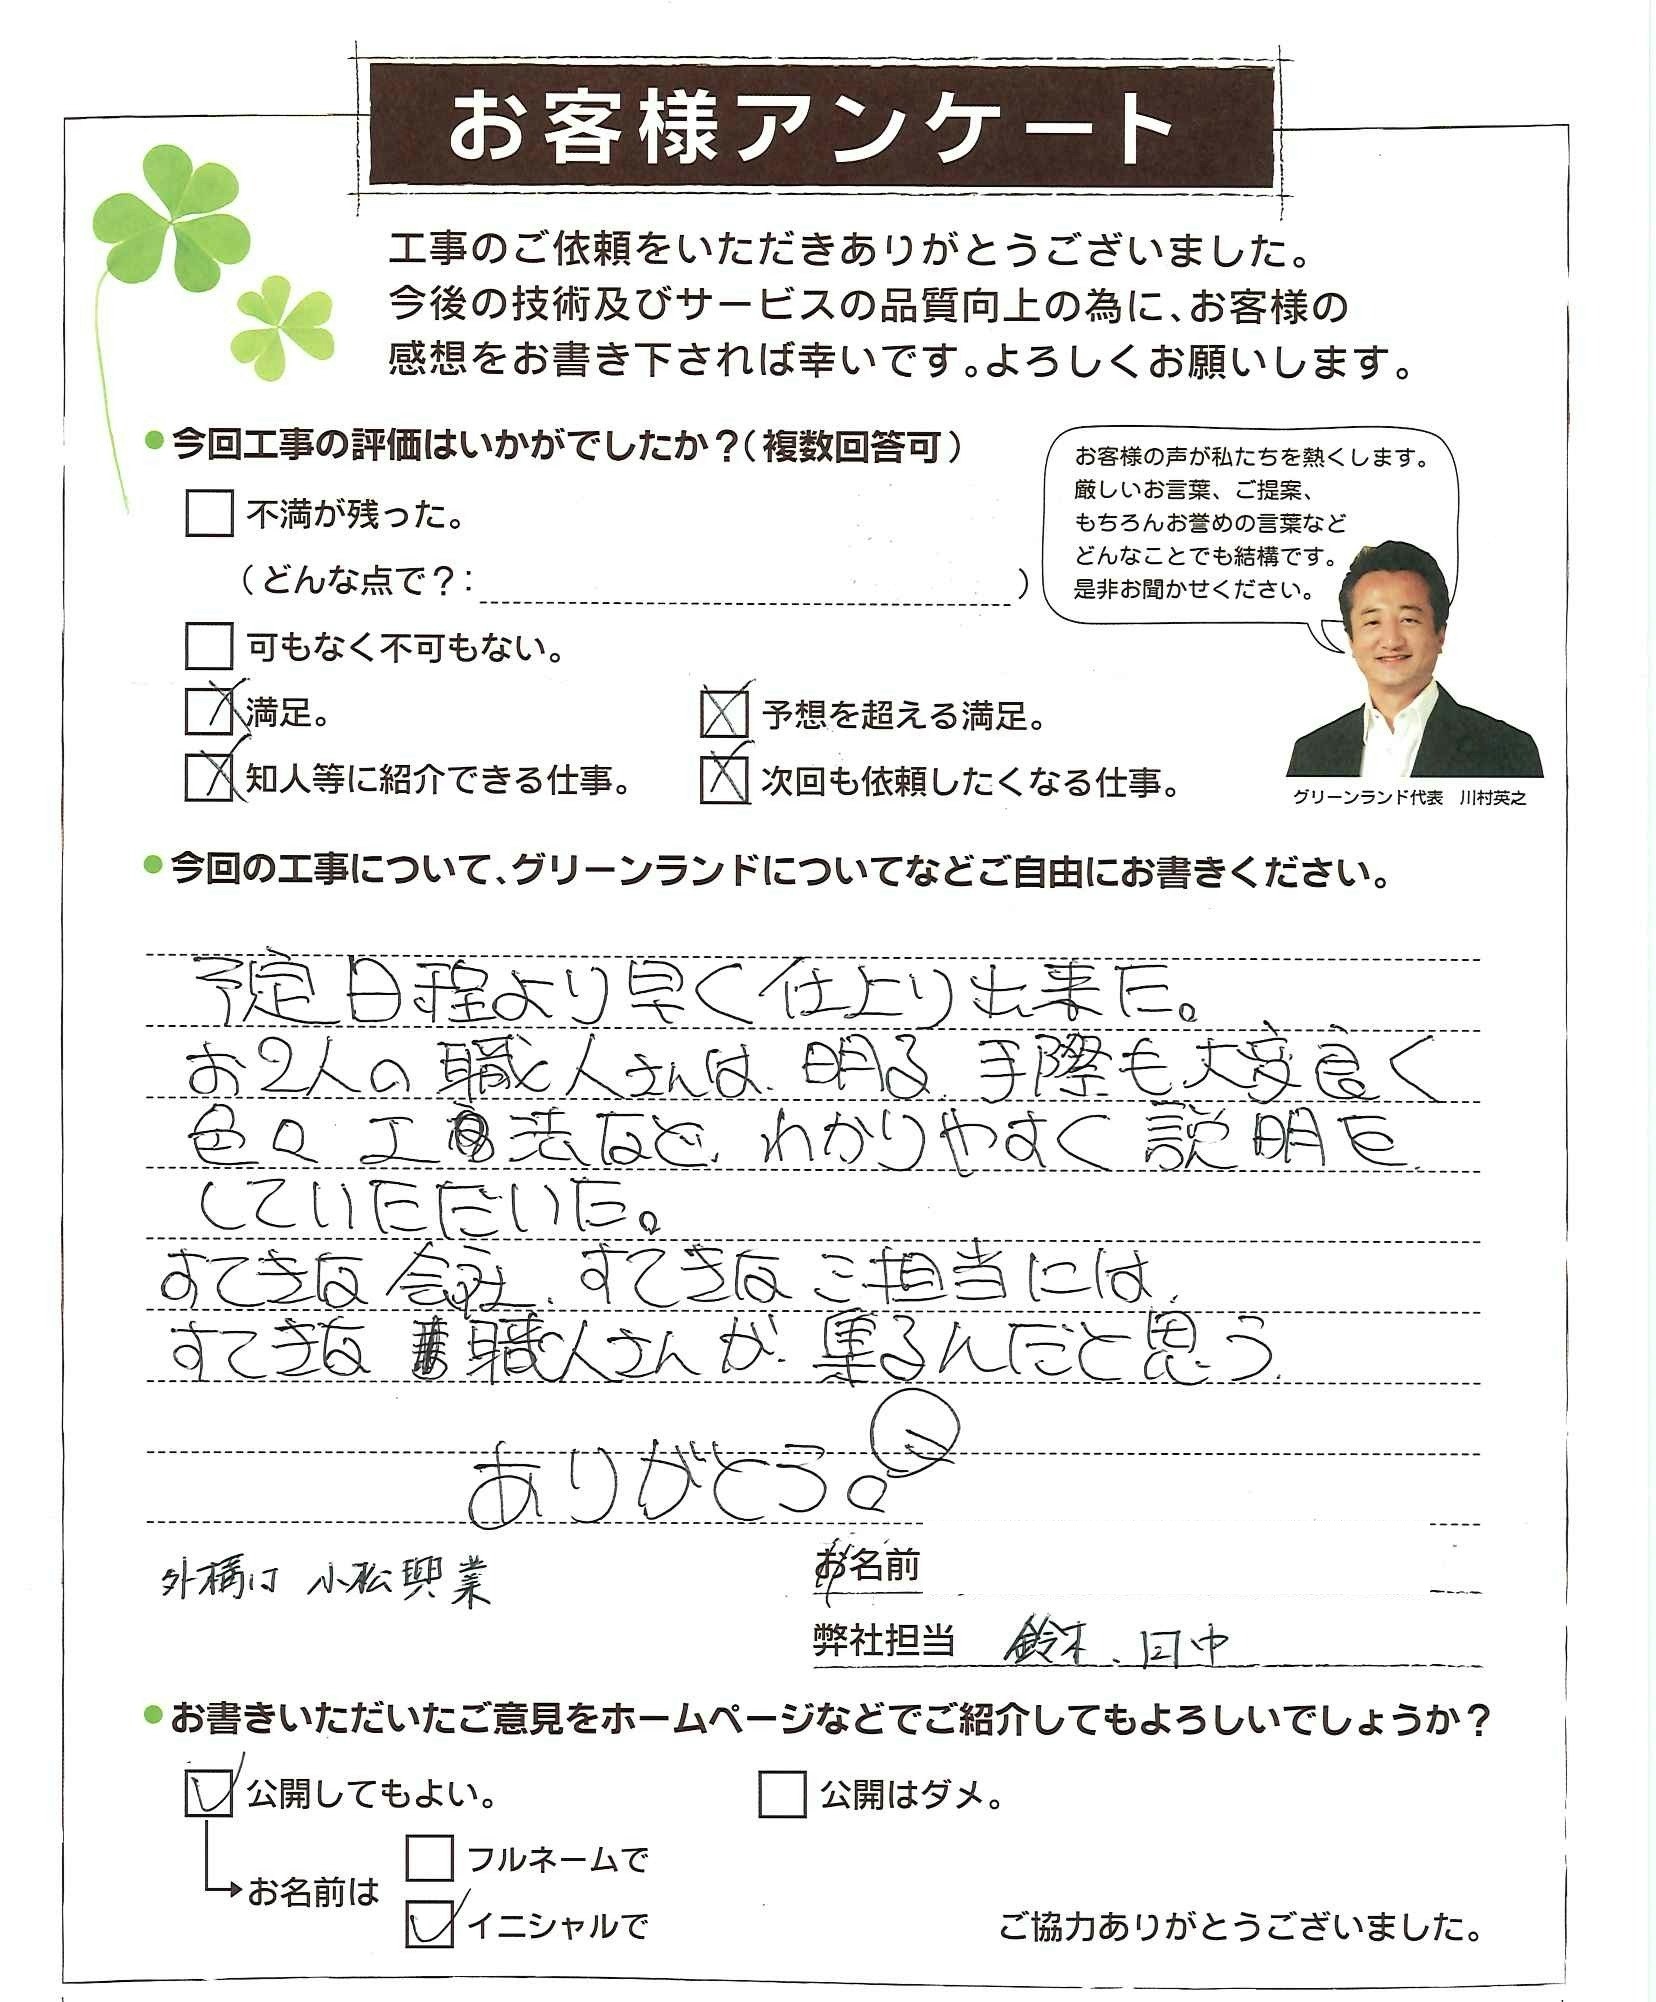 お客様アンケート
工事のご依頼をいただきありがとうございました。
今後の技術及びサービスの品質向上の為に、お客様の
感想をお書き下されば幸いです。よろしくお願いします。
今回工事の評価はいかがでしたか？（複数回答可）
不満が残った。
（どんな点で？：　）
可もなく不可もない。
満足。
予想を超える満足。
知人等に紹介できる仕事。
次回も依頼したくなる仕事。
お客様の声が私たちを熱くします。
厳しいお言葉、ご提案、
もちろんお誉めの言葉など
どんなことでも結構です。
是非お聞かせください。
グリーンランド代表　川村英之
今回の工事について、グリーンランドについてなどご自由にお書きください。
予定日程より早く仕上り出来た。
お2人の職人さんは、明る、手際も大変良く
色々工法など、わかりやすく説明を
していただいた。
すてきな会社、すてきなご担当には、
すてきな職人さんが、集るんだと思う、
ありがとう。
外構は 小松興業
お名前
弊社担当　鈴木、田中
お書きいただいたご意見をホームページなどでご紹介してもよろしいでしょうか？
公開してもよい。
公開はダメ。
お名前は
フルネームで
イニシャルで
ご協力ありがとうございました。